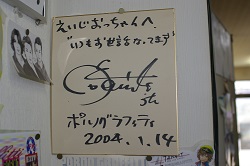 えいじおっちゃんへ
"いつもお世話なってます"
ポルノグラフィティ
2004.1.14